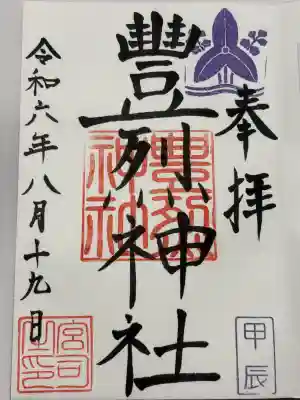 奉拝
豐烈神社
令和六年八月十九日
甲辰
豊烈神社
宮司之印